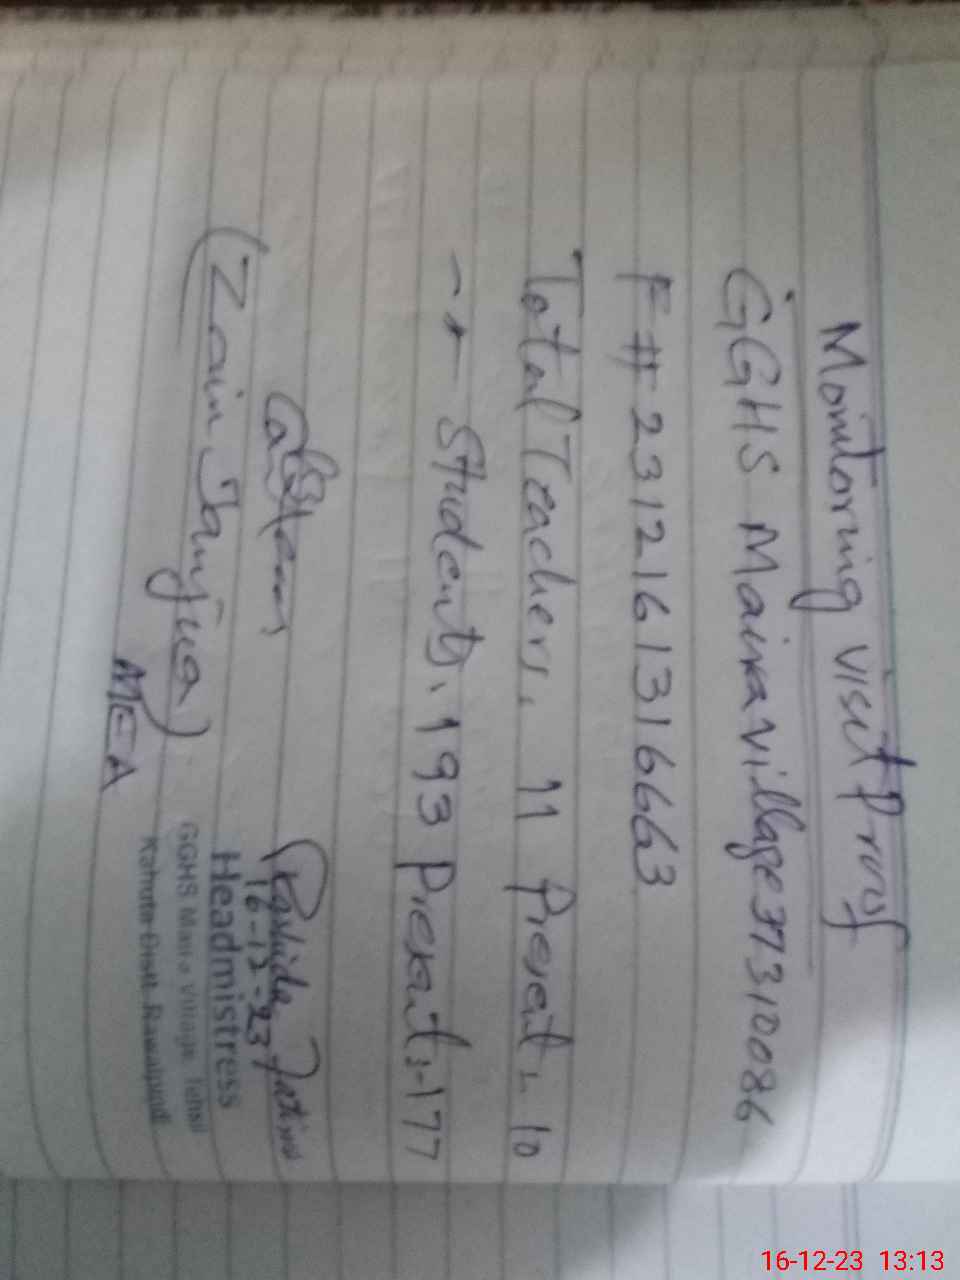 Monitoring visit Proof
GGHS Maira village 37310086
F# 2312161316663
Total Teachers. 11 Present. 10
Students. 193 Present:-177
Rashida
16-12-23
(Zain Janjua)
MEA
Headmistress
GGHS Maira Village Tehsil
Kahuta Distt. Rawalpindi
16-12-23 13:13